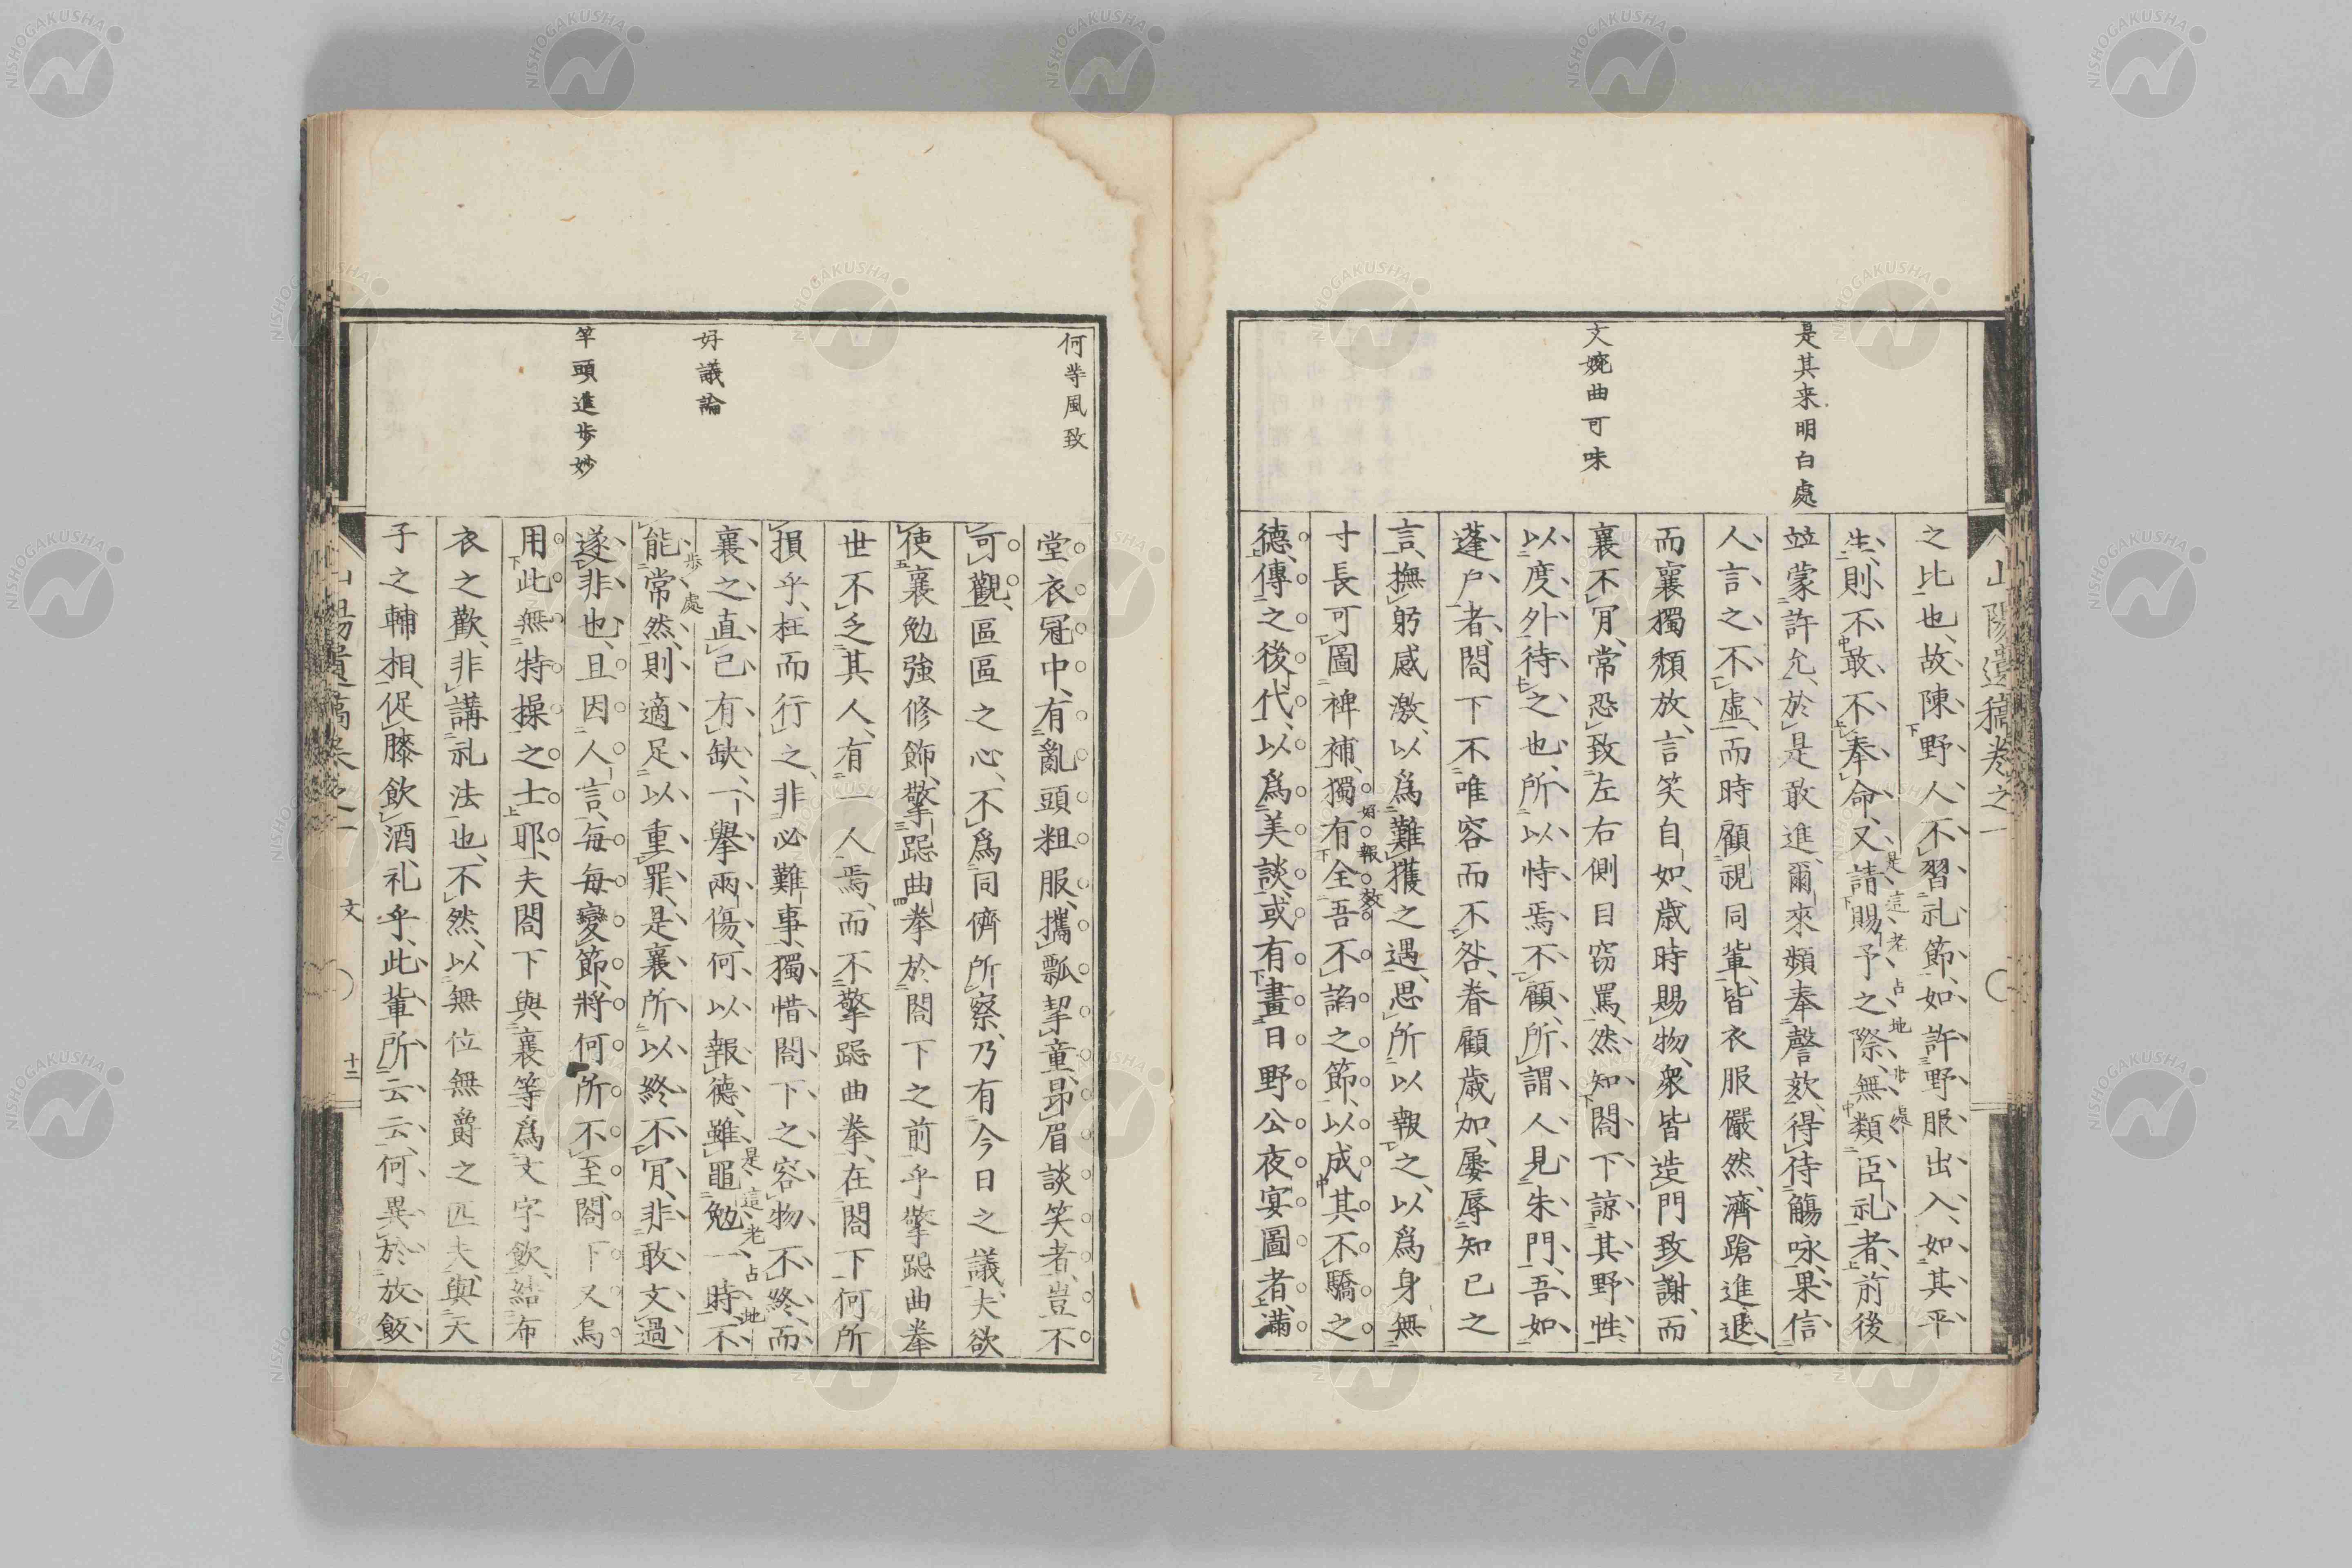 山陽遺稿卷之一
是其来明白處
文婉曲可味
之比也、故陳野人、不習礼節、如許野服出入、如其平
生、則不敢不奉命、又請賜予之際、無類臣礼者、前後
是這老占地步處
竝蒙許允、於是敢進爾來頻奉謦欬、得侍觴咏、果信
人言之不虛、而時顧視同輩、皆衣服儼然、濟蹌進退、
而襄獨頽放、言笑自如、歲時賜物、衆皆造門致謝、而
襄不肎、常恐致左右側目窃罵、然知閤下諒其野性、
以度外待之也、所以恃焉不顧、所謂人見朱門、吾如
蓬户者、閤下不唯容而不咎、眷顧歲加、屡辱知已之
言、撫躬感激、以爲難獲之遇、思所以報之、以爲身無
寸長可圖裨補、獨有全吾不諂之節、以成其不驕之
好報效
德、傳之後代、以爲美談、或有畫日野公夜宴圖者、滿
何等風致
好議論
竿頭進歩妙
堂衣冠中、有亂頭粗服、攜瓢挈童、昂眉談笑者、豈不
可觀、區區之心、不爲同儕所察、乃有今日之議、夫欲
使襄勉強修飾、擎跽曲拳於閤下之前乎擎跽曲拳
世不乏其人、有一人焉、而不擎跽曲拳、在閤下何所
損乎、枉而行之、非必難事、獨惜閤下之容物不終、而
襄之直己有缺、一擧兩傷、何以報德、雖黽勉一時、不
是這老占地
歩處
能常然、則適足以重罪、是襄所以終不肎、非敢文過
遂非也、且因人言、每每變節、將何所不至、閤下又烏
用此無特操之士耶、夫閤下與襄等爲文字飮、結布
衣之歡、非講礼法也、不然、以無位無爵之匹夫、與天
子之輔相、促膝飮酒、礼乎、此輩所云云、何異於放飯
山陽遺稿卷之一
文
十二